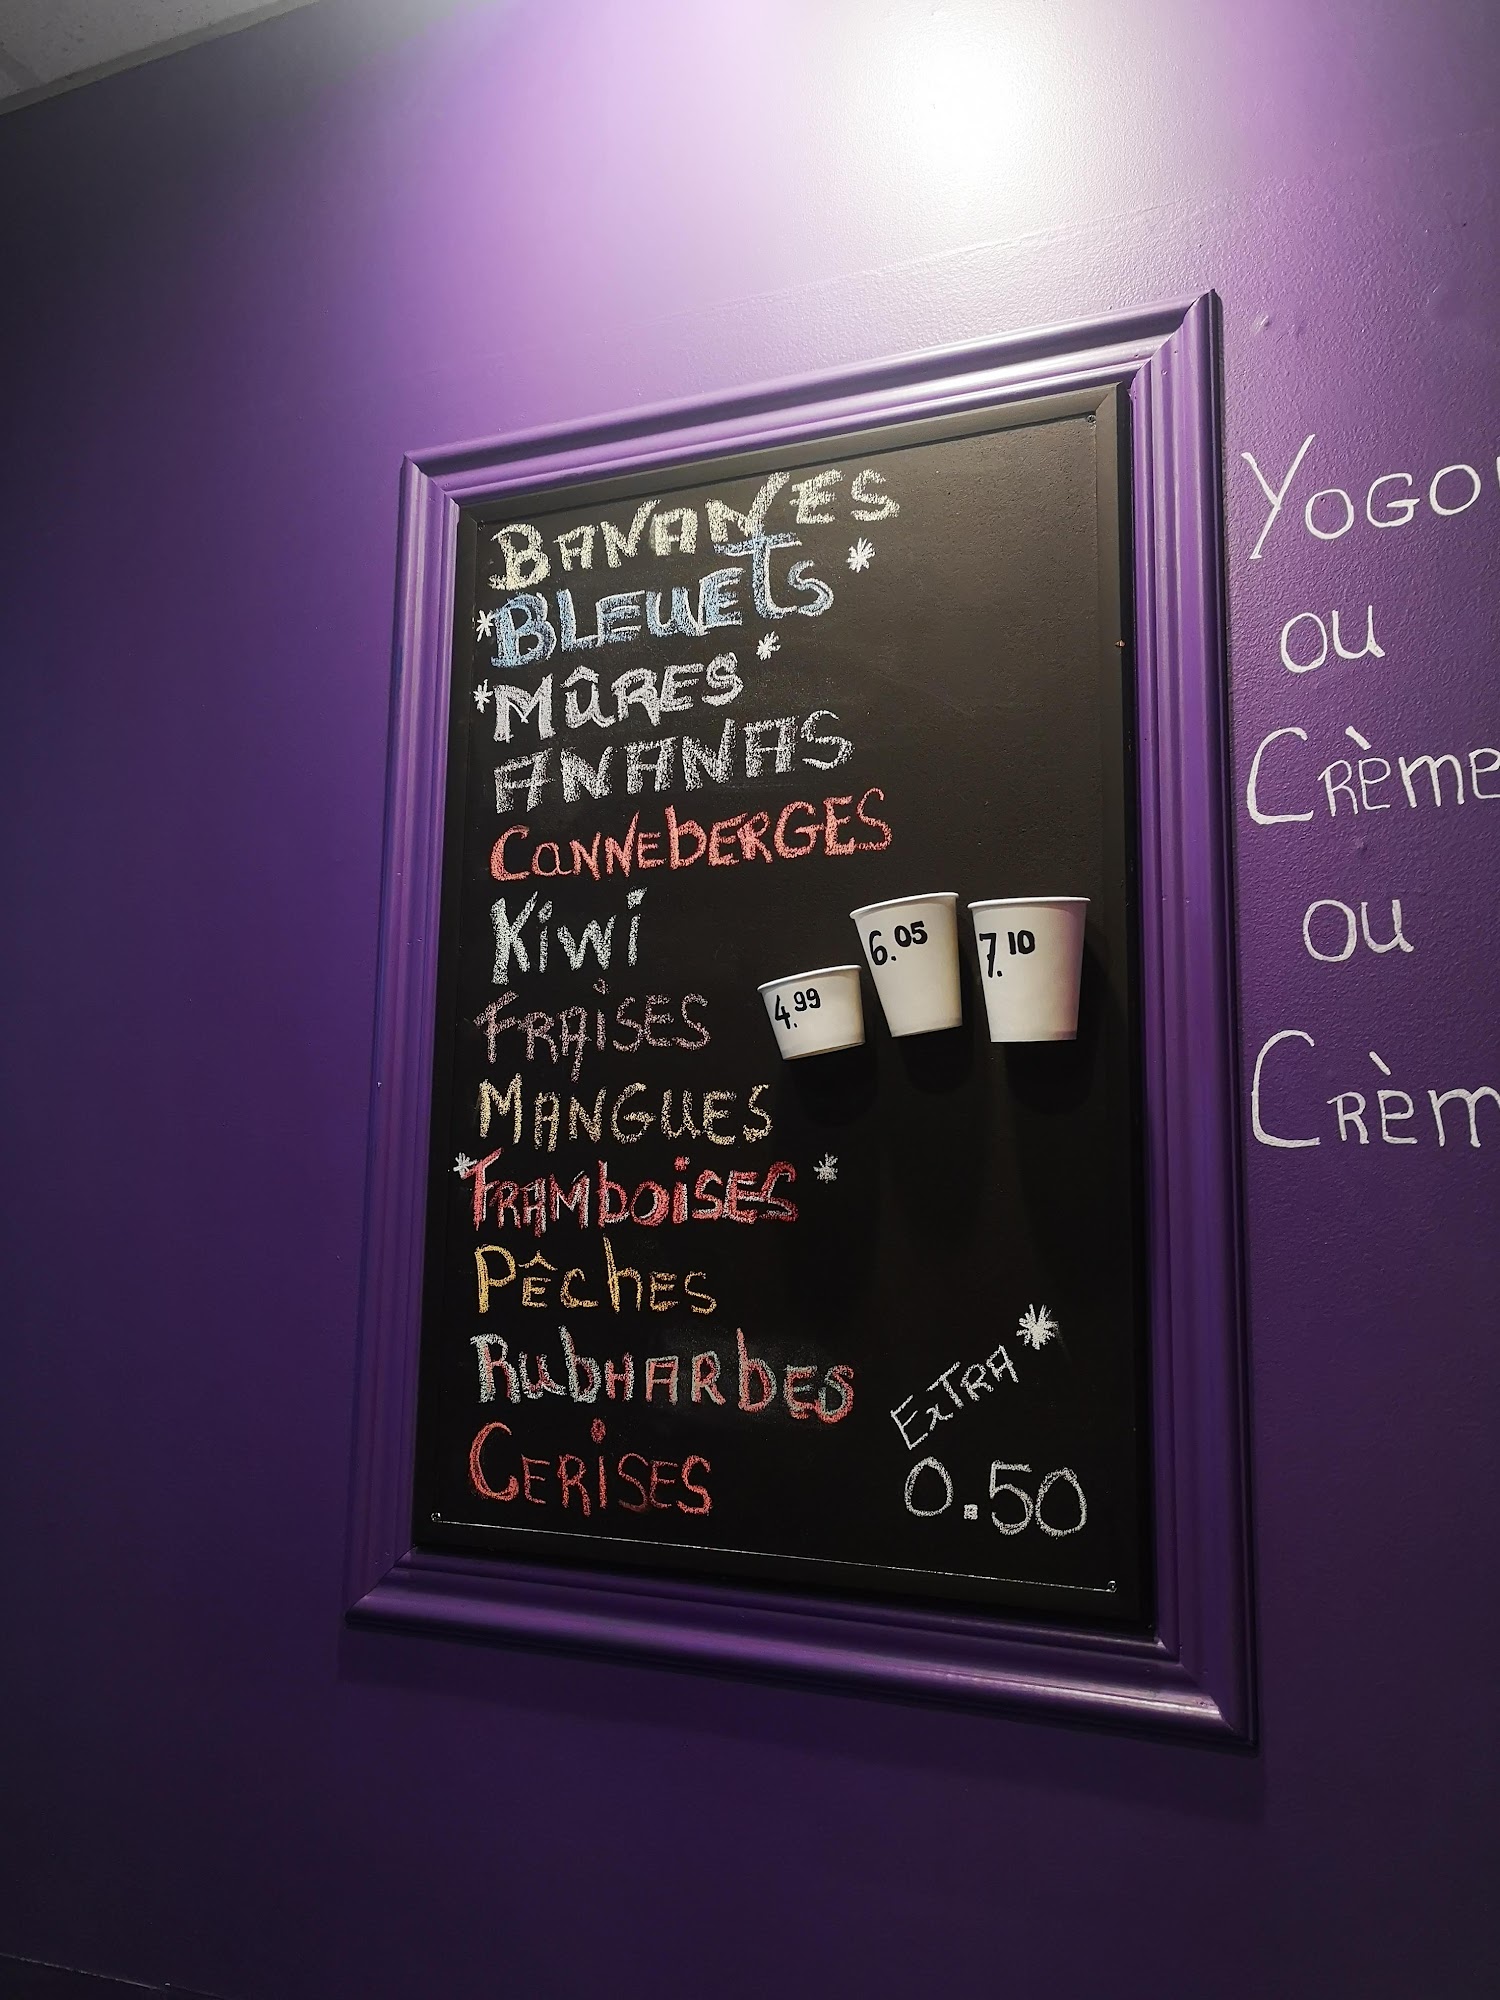 BANANES
*BLEUETS*
*MÛRES*
ANANAS
CANNEBERGES
KiWi
FRAiSES
MANGUES
*FRAMboiSES*
PÊChES
RubHARbES
CERiSES
4.99
6.05
7.10
ExTRA*
0.50
YOGO
OU
CRÈmE
OU
CRÈm